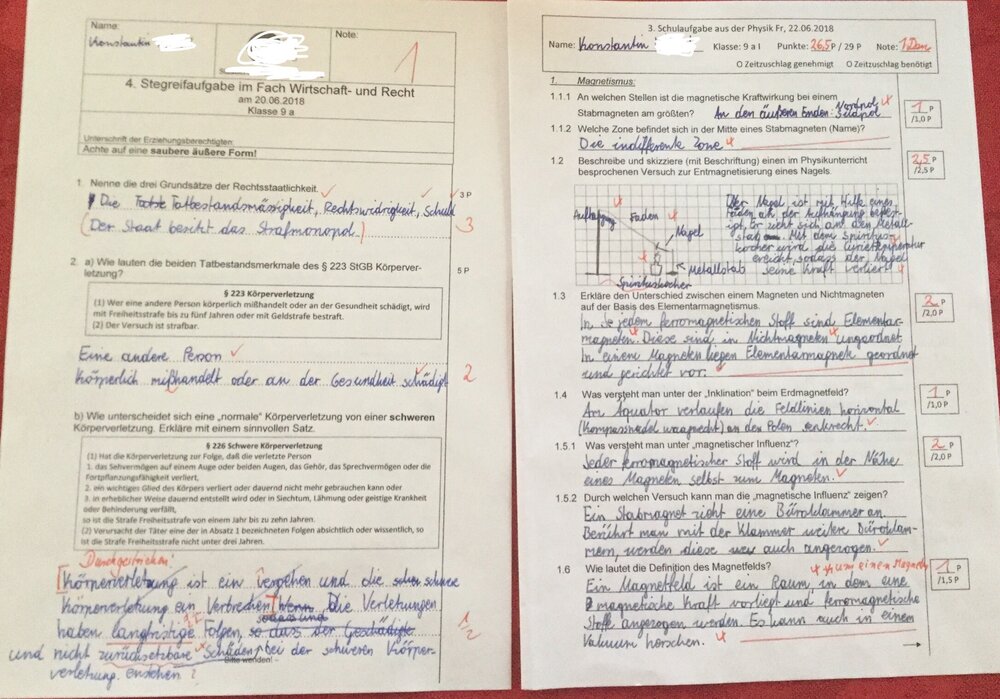 Name:
Konstantin
Note:
1
4. Stegreifaufgabe im Fach Wirtschaft- und Recht
am 20.06.2018
Klasse 9 a
Unterschrift der Erziehungsberechtigten:
Achte auf eine saubere äußere Form!
1. Nenne die drei Grundsätze der Rechtsstaatlichkeit.
3 P
Die Tatbestandsmässigkeit, Rechtswidrigkeit, Schuld
(Der Staat besitzt das Strafmonopol.)
3
2. a) Wie lauten die beiden Tatbestandsmerkmale des § 223 StGB Körperver-
letzung?
5 P
§ 223 Körperverletzung
(1) Wer eine andere Person körperlich mißhandelt oder an der Gesundheit schädigt, wird
mit Freiheitsstrafe bis zu fünf Jahren oder mit Geldstrafe bestraft.
(2) Der Versuch ist strafbar.
Eine andere Person
Körperlich mißhandelt oder an der Gesundheit schädigt
2
b) Wie unterscheidet sich eine „normale“ Körperverletzung von einer schweren
Körperverletzung. Erkläre mit einem sinnvollen Satz.
§ 226 Schwere Körperverletzung
(1) Hat die Körperverletzung zur Folge, daß die verletzte Person
1. das Sehvermögen auf einem Auge oder beiden Augen, das Gehör, das Sprechvermögen oder die
Fortpflanzungsfähigkeit verliert,
2. ein wichtiges Glied des Körpers verliert oder dauernd nicht mehr gebrauchen kann oder
3. in erheblicher Weise dauernd entstellt wird oder in Siechtum, Lähmung oder geistige Krankheit
oder Behinderung verfällt,
so ist die Strafe Freiheitsstrafe von einem Jahr bis zu zehn Jahren.
(2) Verursacht der Täter eine der in Absatz 1 bezeichneten Folgen absichtlich oder wissentlich, so
ist die Strafe Freiheitsstrafe nicht unter drei Jahren.
Durchgestrichen:
[Körperverletzung ist ein Vergehen und die schwere
Körperverletzung ein Verbrechen] Die Verletzungen
haben langfristige Folgen, so dass der Geschädigte
und nicht zurücksetzbare Schäden bei der schweren Körper-
verletzung enstehen.
1/2
Bitte wenden!
3. Schulaufgabe aus der Physik Fr, 22.06.2018
Name: Konstantin Klasse: 9 a I Punkte: 26,5 P / 29 P Note: 1
O Zeitzuschlag genehmigt O Zeitzuschlag benötigt
1. Magnetismus:
1.1.1 An welchen Stellen ist die magnetische Kraftwirkung bei einem
Stabmagneten am größten? An den äußeren Enden: Nordpol Südpol
1 P
/1,0 P
1.1.2 Welche Zone befindet sich in der Mitte eines Stabmagneten (Name)?
Die indifferente Zone
1.2 Beschreibe und skizziere (mit Beschriftung) einen im Physikunterricht
besprochenen Versuch zur Entmagnetisierung eines Nagels.
2,5 P
/2,5 P
Aufhängung
Faden
Nagel
Metallstab
Spirituskocher
Der Nagel ist mit Hilfe eines
Faden an der Aufhängung befest-
igt. Er zieht sich an den Metall-
stab. Mit dem Spiritus-
kocher wird die Curietemperatur
erreicht, sodass der Nagel
seine Kraft verliert.
1.3 Erkläre den Unterschied zwischen einem Magneten und Nichtmagneten
auf der Basis des Elementarmagnetismus.
2 P
/2,0 P
In jedem ferromagnetischen Stoff sind Elementar-
magneten. Diese sind in Nichtmagneten ungeordnet
In einem Magneten liegen Elementarmagnete geordnet
und gerichtet vor.
1.4 Was versteht man unter der "Inklination" beim Erdmagnetfeld?
1 P
/1,0 P
Am Äquator verlaufen die Feldlinien horizontal
(Kompassnadel waagrecht) an den Polen senkrecht.
1.5.1 Was versteht man unter „magnetischer Influenz“?
2 P
/2,0 P
Jeder ferromagnetischer Stoff wird in der Nähe
eines Magneten selbst zum Magneten.
1.5.2 Durch welchen Versuch kann man die „magnetische Influenz“ zeigen?
Ein Stabmagnet zieht eine Büroklammer an.
Berührt man mit der Klammer weitere Büroklam-
mern, werden diese auch angezogen.
1.6 Wie lautet die Definition des Magnetfelds?
um einen Magneten
1 P
/1,5 P
Ein Magnetfeld ist ein Raum in dem eine
magnetische Kraft vorliegt und ferromagnetische
Stoffe angezogen werden. Es kann auch in einem
Vakuum herschen.